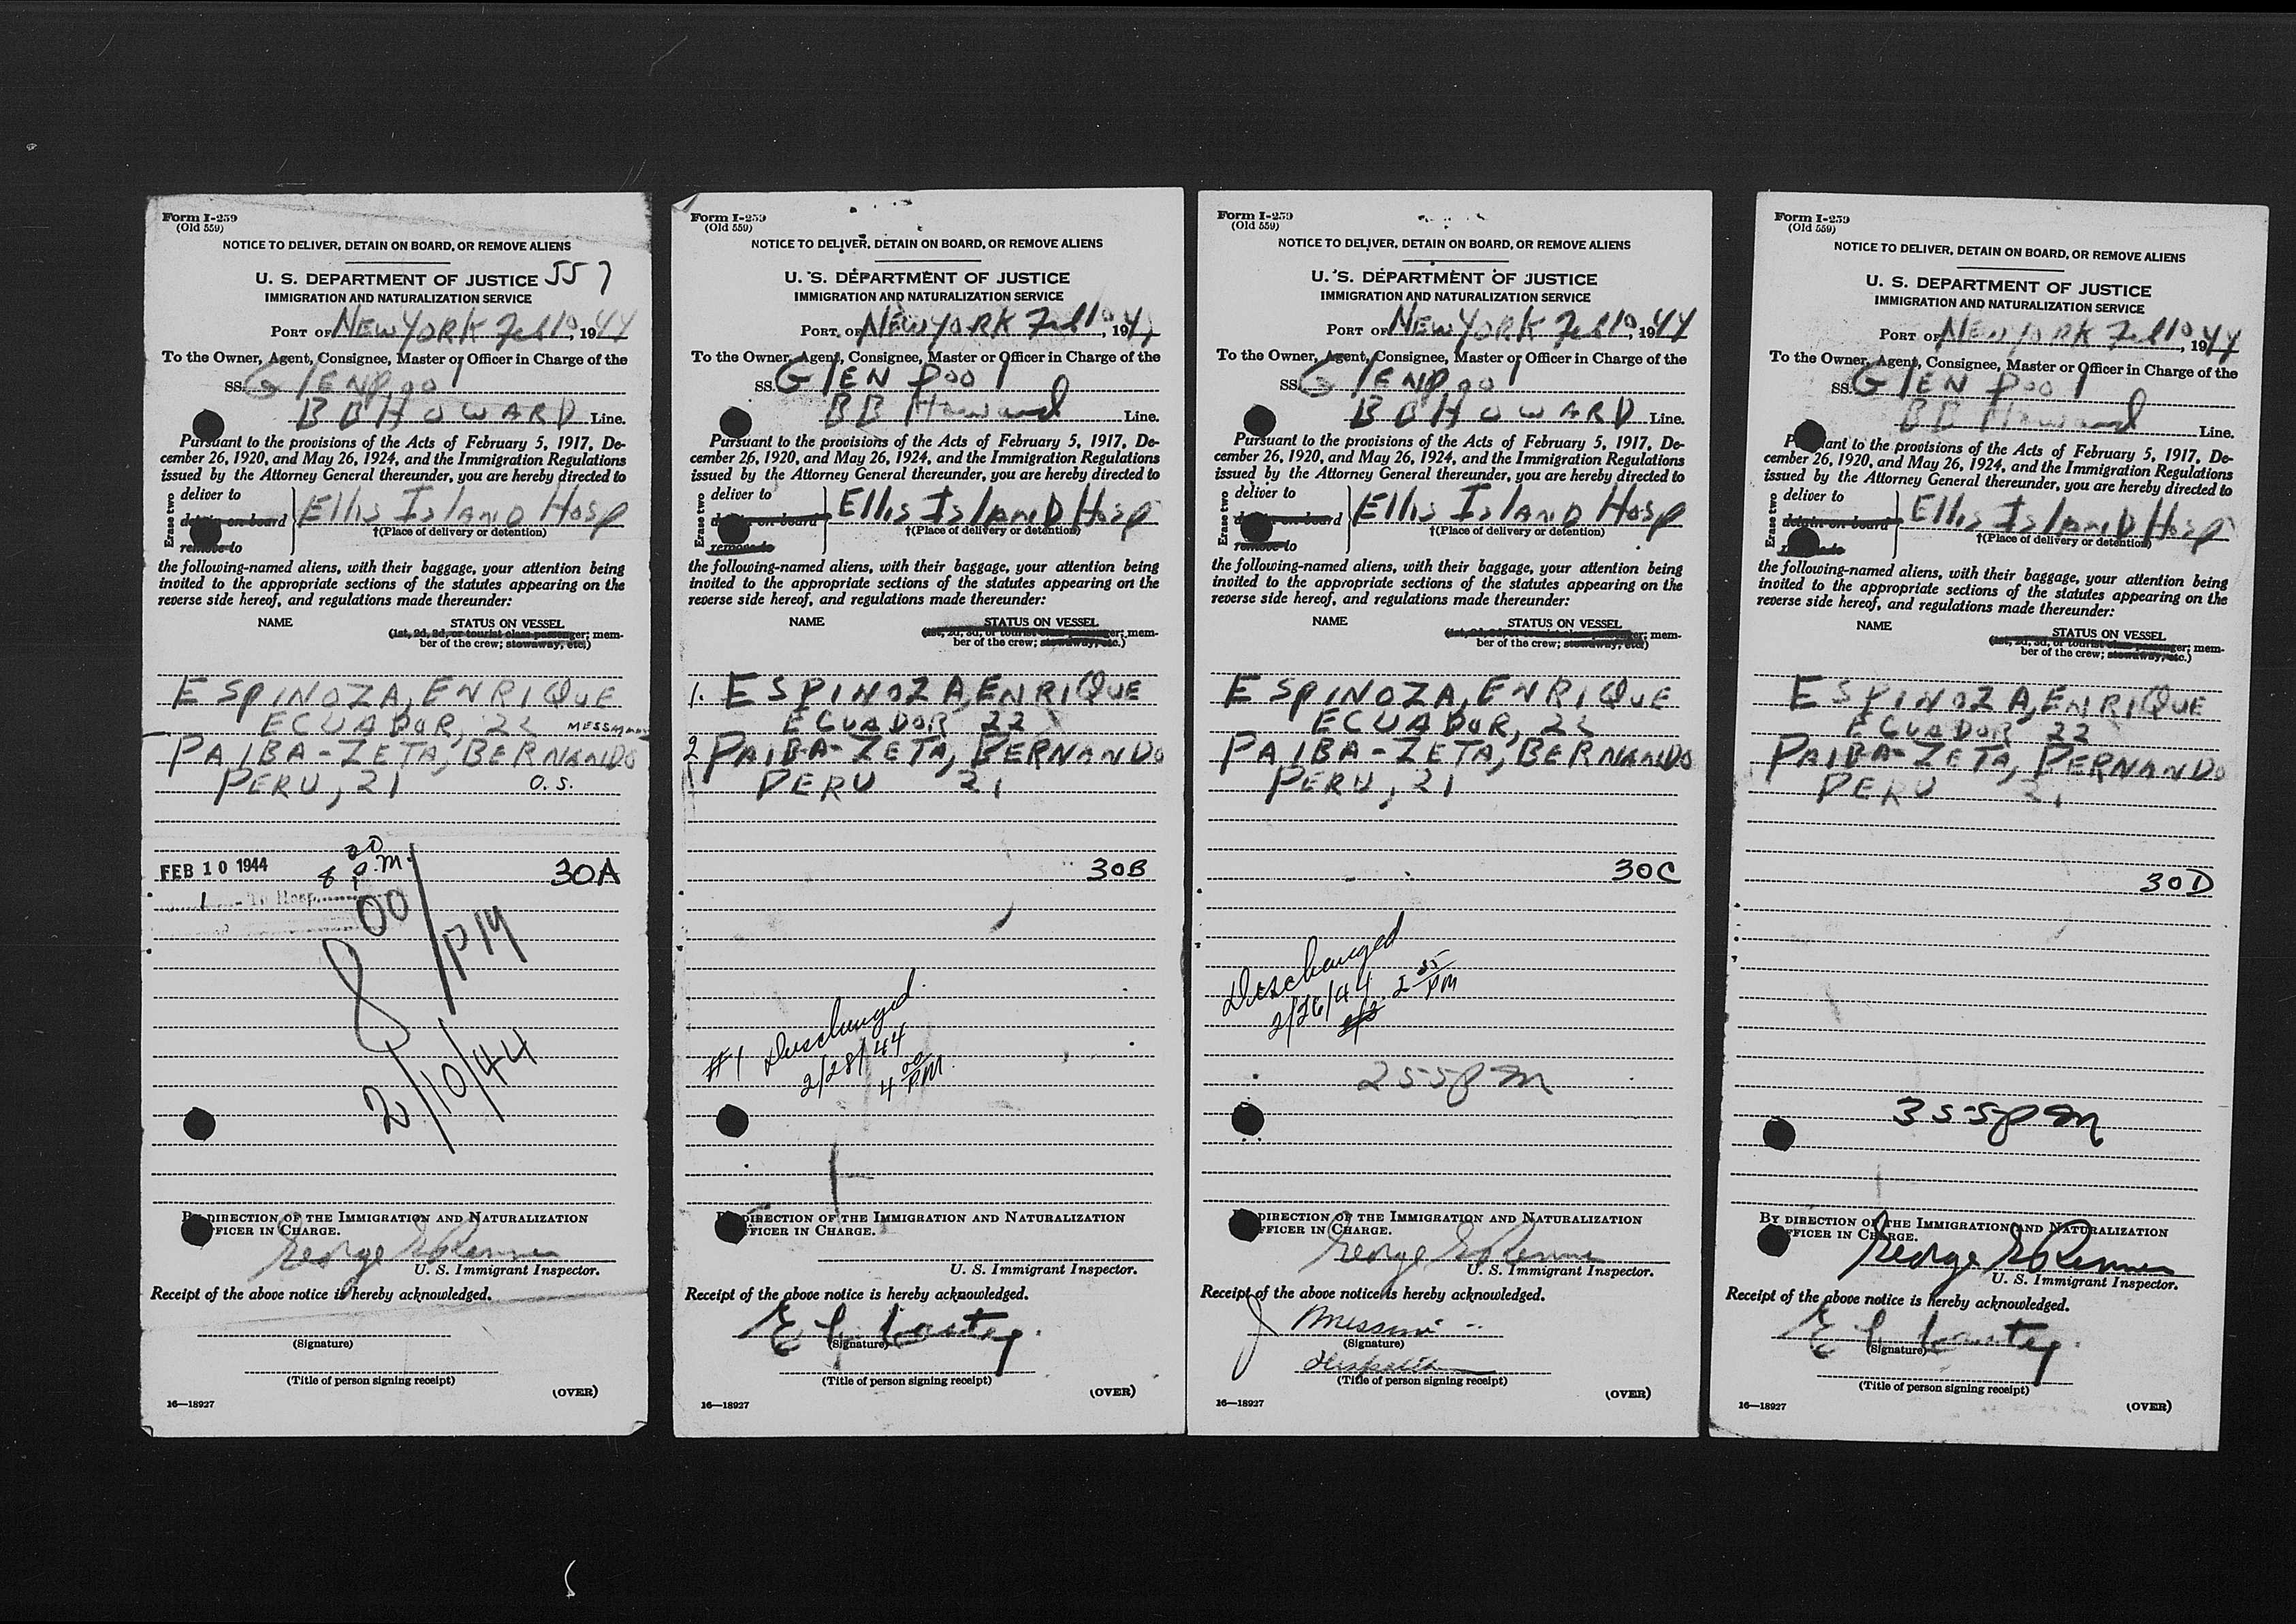 Form I-259
(Old 559)
NOTICE TO DELIVER, DETAIN ON BOARD, OR REMOVE ALIENS
U. S. DEPARTMENT OF JUSTICE 557
IMMIGRATION AND NATURALIZATION SERVICE
PORT OF NEW YORK Feb 10, 1944
To the Owner, Agent, Consignee, Master or Officer in Charge of the
SS. GlENPool
BB HOWARD Line.
Pursuant to the provisions of the Acts of February 5, 1917, De-
cember 26, 1920, and May 26, 1924, and the Immigration Regulations
issued by the Attorney General thereunder, you are hereby directed to
Erase two
deliver to
detain on board
remove to
Ellis IslAND Hosp
†(Place of delivery or detention)
the following-named aliens, with their baggage, your attention being
invited to the appropriate sections of the statutes appearing on the
reverse side hereof, and regulations made thereunder:
NAME STATUS ON VESSEL
(1st, 2d, 3d, or tourist class passenger; mem-
ber of the crew; stowaway, etc.)
ESPINOZA, ENRIQUE
ECUADOR, 22 MESSMAN
PAIBA-ZETA, BERNANDO
PERU, 21 O.S.
FEB 10 1944 8 30 P.M. 30A
1 To Hosp
8 00 / PM
2/10/44
BY DIRECTION OF THE IMMIGRATION AND NATURALIZATION
OFFICER IN CHARGE.
George
U. S. Immigrant Inspector.
Receipt of the above notice is hereby acknowledged.
(Signature)
(Title of person signing receipt)
(OVER)
16—18927
Form I-259
(Old 559)
NOTICE TO DELIVER, DETAIN ON BOARD, OR REMOVE ALIENS
U. S. DEPARTMENT OF JUSTICE
IMMIGRATION AND NATURALIZATION SERVICE
PORT OF NEW YORK Feb 10, 1944
To the Owner, Agent, Consignee, Master or Officer in Charge of the
SS. GlEN Pool
BB Howard Line.
Pursuant to the provisions of the Acts of February 5, 1917, De-
cember 26, 1920, and May 26, 1924, and the Immigration Regulations
issued by the Attorney General thereunder, you are hereby directed to
Erase two
deliver to
detain on board
remove to
Ellis IslAND Hosp
†(Place of delivery or detention)
the following-named aliens, with their baggage, your attention being
invited to the appropriate sections of the statutes appearing on the
reverse side hereof, and regulations made thereunder:
NAME STATUS ON VESSEL
(1st, 2d, 3d, or tourist class passenger; mem-
ber of the crew; stowaway, etc.)
1. ESPINOZA, ENRIQUE
ECUADOR 22
2 PAIBA-ZETA, BERNANDO
PERU 21
30B
#1 Discharged
2/28/44
4 00 PM.
BY DIRECTION OF THE IMMIGRATION AND NATURALIZATION
OFFICER IN CHARGE.
U. S. Immigrant Inspector.
Receipt of the above notice is hereby acknowledged.
(Signature)
(Title of person signing receipt)
(OVER)
16—18927
Form I-259
(Old 559)
NOTICE TO DELIVER, DETAIN ON BOARD, OR REMOVE ALIENS
U. S. DEPARTMENT OF JUSTICE
IMMIGRATION AND NATURALIZATION SERVICE
PORT OF NEW YORK Feb 10, 1944
To the Owner, Agent, Consignee, Master or Officer in Charge of the
SS. GlENPool
BB HOWARD Line.
Pursuant to the provisions of the Acts of February 5, 1917, De-
cember 26, 1920, and May 26, 1924, and the Immigration Regulations
issued by the Attorney General thereunder, you are hereby directed to
Erase two
deliver to
detain on board
remove to
Ellis IslAND Hosp
†(Place of delivery or detention)
the following-named aliens, with their baggage, your attention being
invited to the appropriate sections of the statutes appearing on the
reverse side hereof, and regulations made thereunder:
NAME STATUS ON VESSEL
(1st, 2d, 3d, or tourist class passenger; mem-
ber of the crew; stowaway, etc.)
ESPINOZA, ENRIQUE
ECUADOR, 22
PAIBA-ZETA, BERNANDO
PERU, 21
30C
Discharged
2/26/44 2 55 PM
255 pm
BY DIRECTION OF THE IMMIGRATION AND NATURALIZATION
OFFICER IN CHARGE.
George
U. S. Immigrant Inspector.
Receipt of the above notice is hereby acknowledged.
(Signature)
(Title of person signing receipt)
(OVER)
16—18927
Form I-259
(Old 559)
NOTICE TO DELIVER, DETAIN ON BOARD, OR REMOVE ALIENS
U. S. DEPARTMENT OF JUSTICE
IMMIGRATION AND NATURALIZATION SERVICE
PORT OF NEW YORK Feb 10, 1944
To the Owner, Agent, Consignee, Master or Officer in Charge of the
SS. GlEN Pool
BB Howard Line.
Pursuant to the provisions of the Acts of February 5, 1917, De-
cember 26, 1920, and May 26, 1924, and the Immigration Regulations
issued by the Attorney General thereunder, you are hereby directed to
Erase two
deliver to
detain on board
Ellis IslAND Hosp
†(Place of delivery or detention)
the following-named aliens, with their baggage, your attention being
invited to the appropriate sections of the statutes appearing on the
reverse side hereof, and regulations made thereunder:
NAME STATUS ON VESSEL
(1st, 2d, 3d, or tourist class passenger; mem-
ber of the crew; stowaway, etc.)
ESPINOZA, ENRIQUE
ECUADOR 22
PAIBA-ZETA, BERNANDO
PERU 21
30D
355 pm
BY DIRECTION OF THE IMMIGRATION AND NATURALIZATION
OFFICER IN CHARGE.
George
U. S. Immigrant Inspector.
Receipt of the above notice is hereby acknowledged.
(Signature)
(Title of person signing receipt)
(OVER)
16—18927